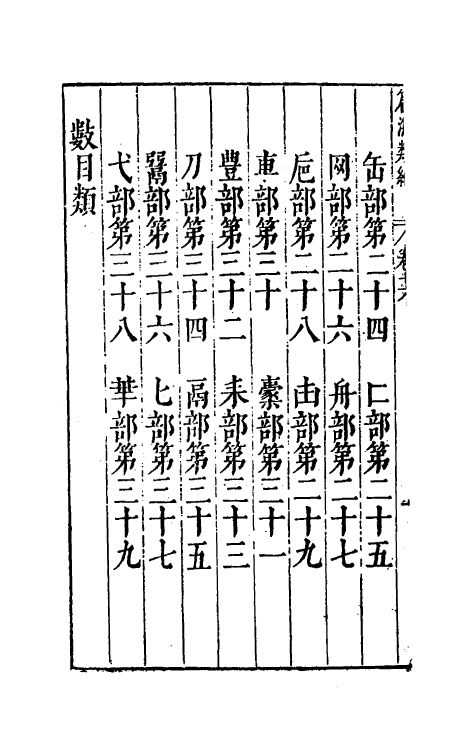 篇海類編 卷
缶部第二十四　匚部第二十五
网部第二十六　舟部第二十七
巵部第二十八　由部第二十九
車部第三十　㯻部第三十一
豊部第三十二　耒部第三十三
刀部第三十四　鬲部第三十五
䰜部第三十六　匕部第三十七
弋部第三十八　華部第三十九
數目類